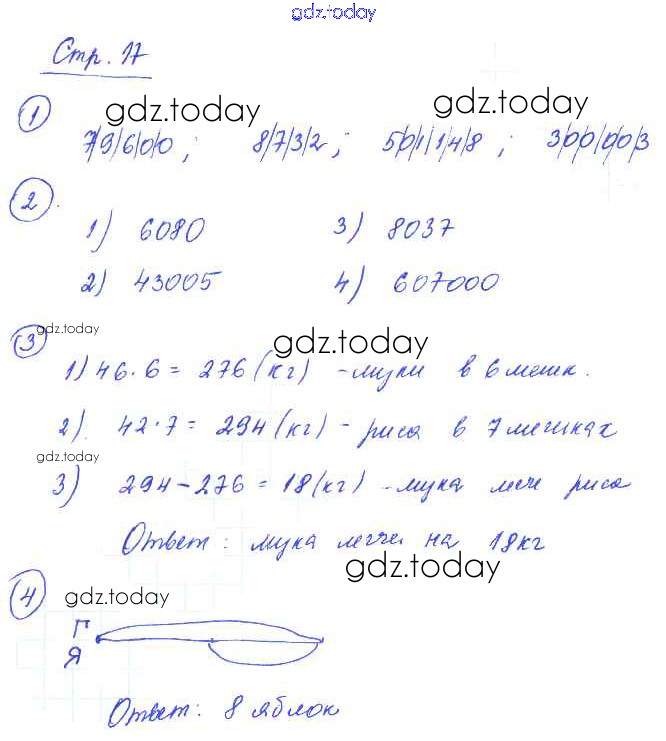 gdz.today
Стр. 17
gdz.today gdz.today
1 7/9/6/0/0 ; 8/7/3/2 ; 5/0/1/1/4/8 ; 3/0/0/0/0/3
2.
1) 6080 3) 8037
2) 43005 4) 607000
gdz.today gdz.today
3
1) 46·6 = 276 (кг) - муки в 6 мешк.
2). 42·7 = 294 (кг) - риса в 7 мешках
gdz.today
3) 294 - 276 = 18 (кг) - мука легче риса
Ответ: мука легче на 18 кг
gdz.today
4 gdz.today
Г
Я
Ответ: 8 яблок